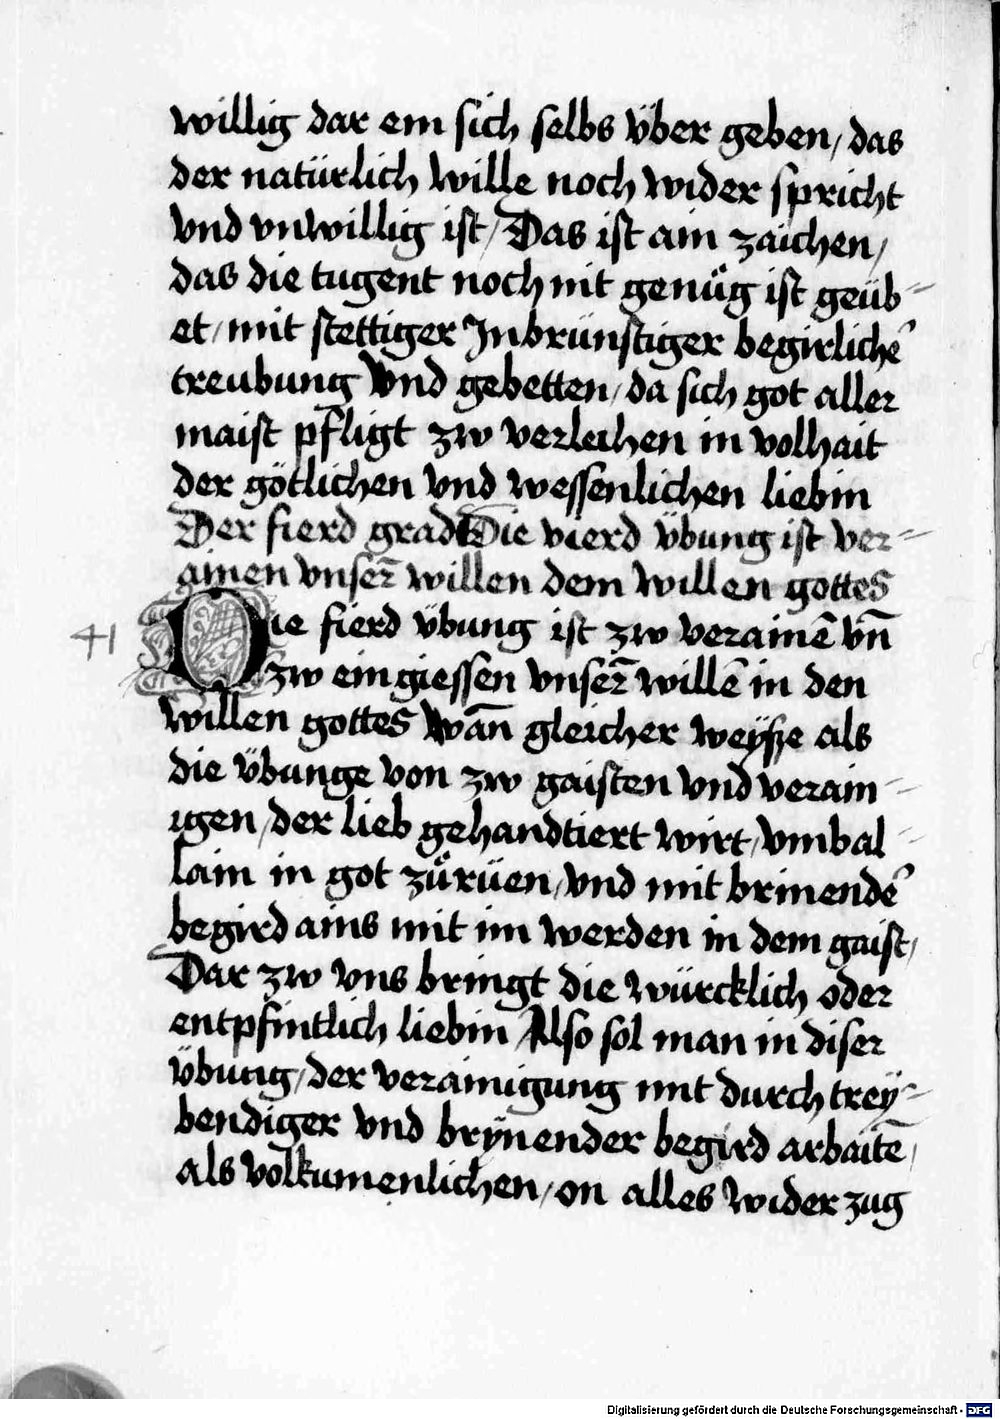 willig dar ein sich selbs über geben, das
der natürlich wille noch wider spricht
vnd vnwillig ist, Das ist ain zaichen,
das die tugent noch nit genůg ist geüb-
et, mit stettiger Inbrünstiger begirlichē
treubung vnd gebetten, da sich got aller
maist pfligt zw verleichen in volhait
der götlichen vnd wessenlichen liebin
Der fierd grad Die vierd übung ist ver-
ainen vnser̄ willen dem willen gottes
41
Die fierd übung ist zw verainē vn̄
zw ein giessen vnser̄ willē in den
willen gottes wan̄ gleicher weyße als
die übunge von zw gaisten vnd verain-
igen, der lieb gehandtiert wirt, vmbal-
lain in got zů rüen, vnd mit brinendē
begird ains mit im werden in dem gaist,
Dar zw vns bringt die würcklich oder
entpfintlich liebin, Also sol man in diser
übung, der verainigung mit durch trey-
bendiger vnd brynender begird arbaitē,
als volkumenlichen, on alles wider zug
Digitalisierung gefördert durch die Deutsche Forschungsgemeinschaft - DFG